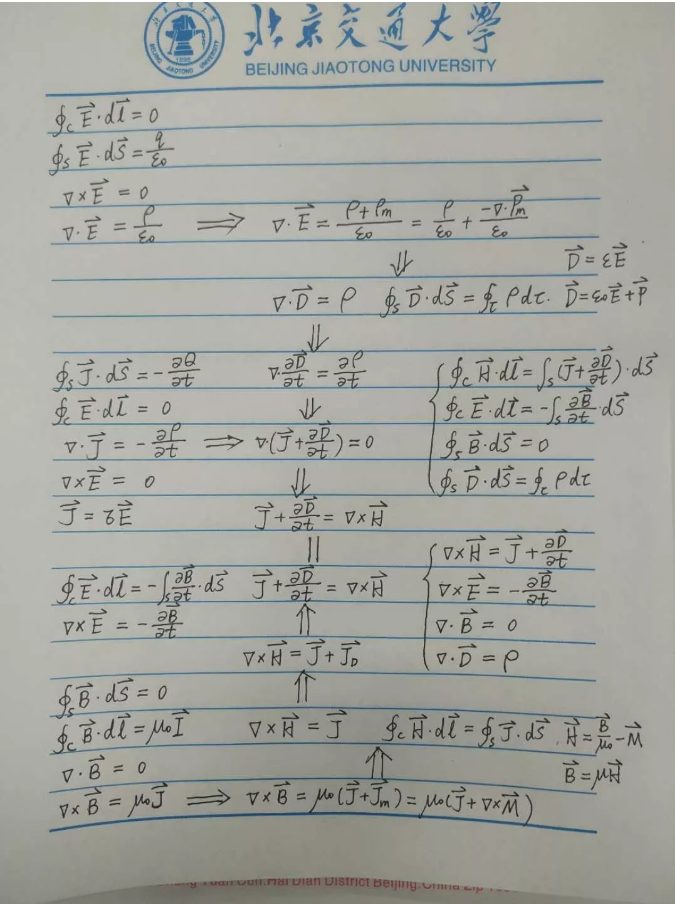 北京交通大學
BEIJING JIAOTONG UNIVERSITY
∮_c E⃗·dl⃗ = 0
∮_S E⃗·dS⃗ = q/ε₀
∇×E⃗ = 0
∇·E⃗ = ρ/ε₀ ⟹ ∇·E⃗ = (ρ+ρ_m)/ε₀ = ρ/ε₀ + (-∇·P⃗_m)/ε₀
⇓ D⃗ = εE⃗
∇·D⃗ = ρ ∮_S D⃗·dS⃗ = ∮_τ ρdτ. D⃗ = ε₀E⃗+P⃗
⇓
∮_S J⃗·dS⃗ = -∂Q/∂t ∇·∂D⃗/∂t = ∂ρ/∂t { ∮_c H⃗·dl⃗ = ∫_S (J⃗+∂D⃗/∂t)·dS⃗
∮_c E⃗·dl⃗ = 0 ⇓ ∮_c E⃗·dl⃗ = -∫_S ∂B⃗/∂t·dS⃗
∇·J⃗ = -∂ρ/∂t ⟹ ∇·(J⃗+∂D⃗/∂t) = 0 ∮_S B⃗·dS⃗ = 0
∇×E⃗ = 0 ⇓ ∮_S D⃗·dS⃗ = ∮_τ ρdτ
J⃗ = σE⃗ J⃗+∂D⃗/∂t = ∇×H⃗
|| { ∇×H⃗ = J⃗+∂D⃗/∂t
∮_c E⃗·dl⃗ = -∫_S ∂B⃗/∂t·dS⃗ J⃗+∂D⃗/∂t = ∇×H⃗ ∇×E⃗ = -∂B⃗/∂t
∇×E⃗ = -∂B⃗/∂t ⇑ ∇·B⃗ = 0
∇×H⃗ = J⃗+J⃗_D ∇·D⃗ = ρ
∮_S B⃗·dS⃗ = 0 ⇑
∮_c B⃗·dl⃗ = μ₀I⃗ ∇×H⃗ = J⃗ ∮_c H⃗·dl⃗ = ∮_S J⃗·dS⃗. H⃗ = B⃗/μ₀-M⃗
∇·B⃗ = 0 ⇑ B⃗ = μH⃗
∇×B⃗ = μ₀J⃗ ⟹ ∇×B⃗ = μ₀(J⃗+J⃗_m) = μ₀(J⃗+∇×M⃗)
Yuan Cun.Hai Dian District Beijing.China Zip